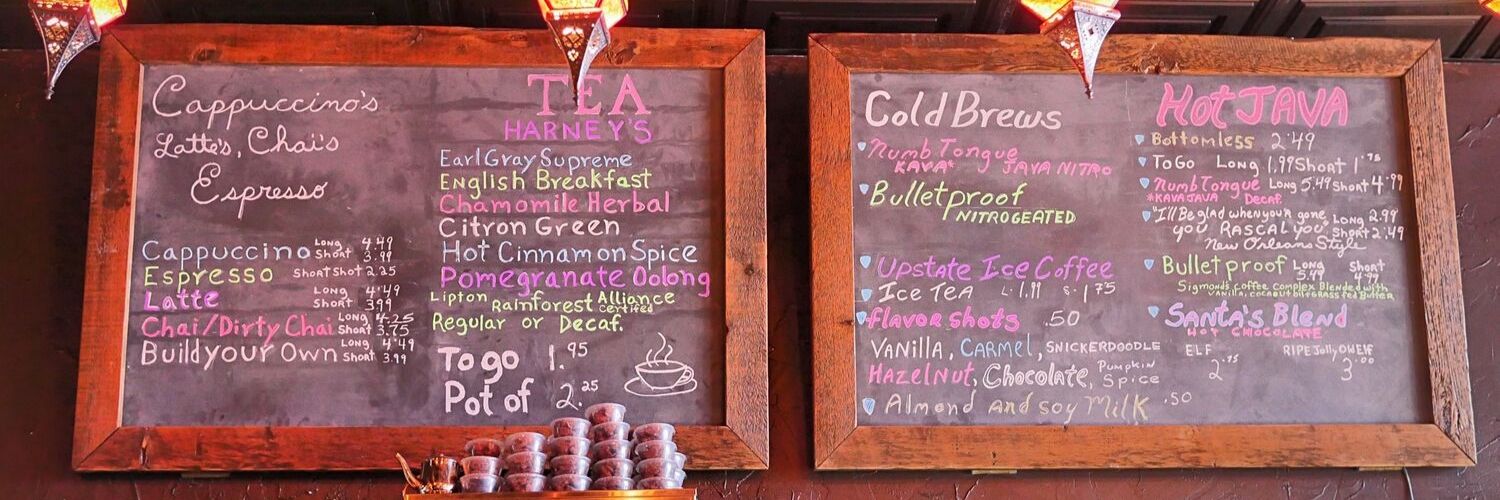 Cappuccino's
Latte's, Chai's
Espresso
Cappuccino Long 4.49 Short 3.99
Espresso Short Shot 2.25
Latte Long 4.49 Short 3.99
Chai/Dirty Chai Long 4.25 Short 3.75
Build your Own Long 4.49 Short 3.99
TEA
HARNEY'S
Earl Gray Supreme
English Breakfast
Chamomile Herbal
Citron Green
Hot Cinnamon Spice
Pomegranate Oolong
Lipton Rainforest Alliance Certified
Regular or Decaf.
To go 1.95
Pot of 2.25
Cold Brews
Numb Tongue
KAVA* JAVA NITRO
Bulletproof
NITROGEATED
Upstate Ice Coffee
Ice TEA L. 1.99 S. 1.75
flavor shots .50
VANilla, CARMEL, SNICKERDOODLE
HAZelNut, Chocolate, Pumpkin Spice
Almond and soy Milk .50
Hot JAVA
Bottomless 2.49
To Go Long 1.99 Short 1.75
Numb Tongue Long 5.49 Short 4.99
*KAVA JAVA Decaf.
"I'll Be glad when your gone Long 2.99
you RASCAL you" Short 2.49
New Orleans Style
Bulletproof Long 5.49 Short 4.99
Sigmonds coffee complex Blended with
VANilla, coconut oil & GRASS fed Butter
SANTA'S Blend
HOT CHOCOLATE
ELF 2.75 RIPE Jolly OW Elf 3.00